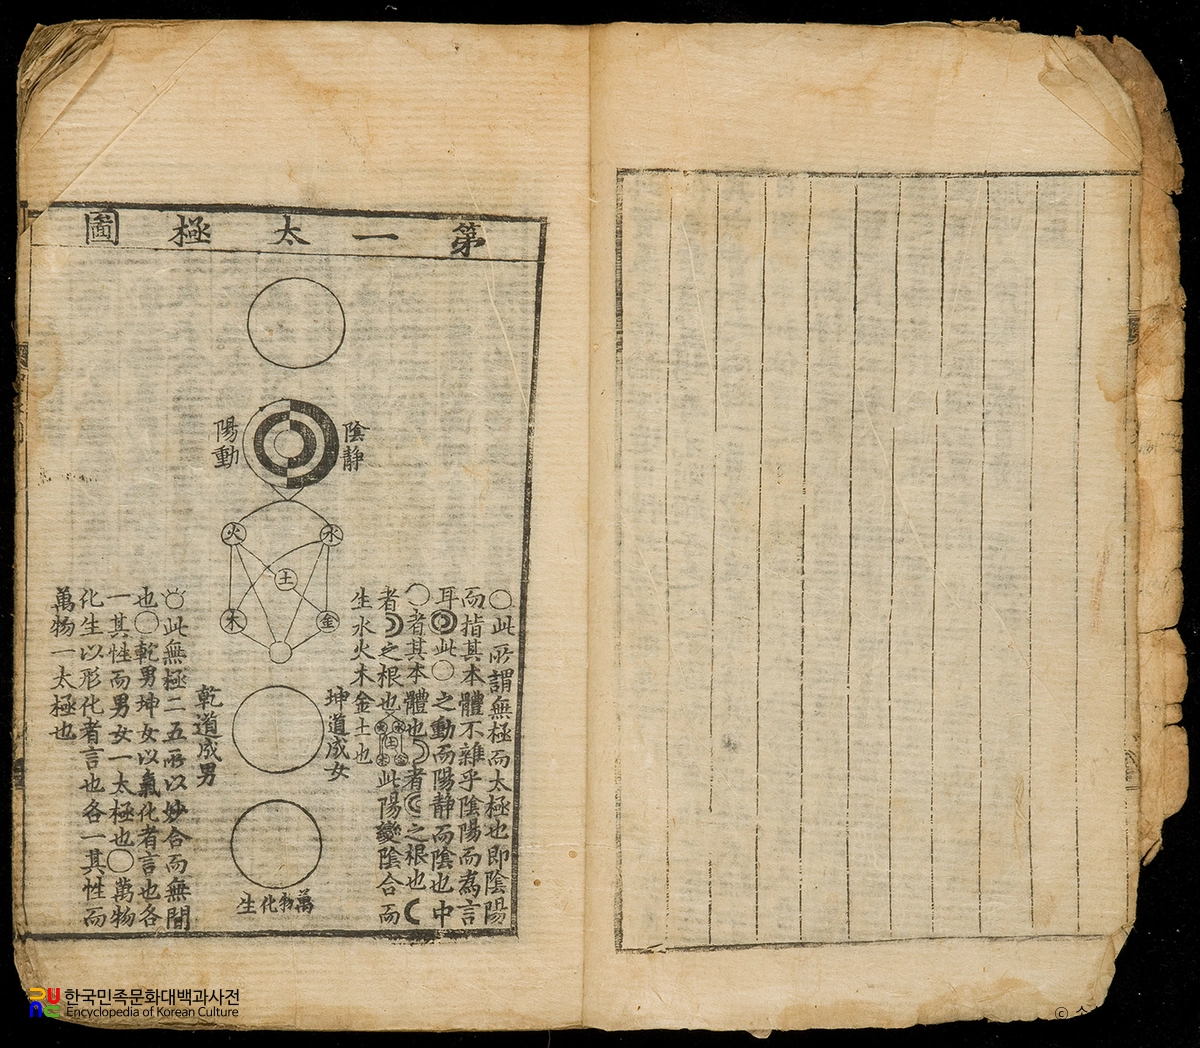 第一太極圖
陰靜
陽動
水
火
土
金
木
坤道成女
乾道成男
萬物化生
○此所謂無極而太極也即陰陽
而指其本體不雜乎陰陽而爲言
耳 此○之動而陽靜而陰也中
○者其本體也 者 之根也
者 之根也 此陽變陰合而
生水火木金土也
此無極二五所以妙合而無間
也○乾男坤女以氣化者言也各
一其性而男女一太極也○萬物
化生以形化者言也各一其性而
萬物一太極也
한국민족문화대백과사전
Encyclopedia of Korean Culture